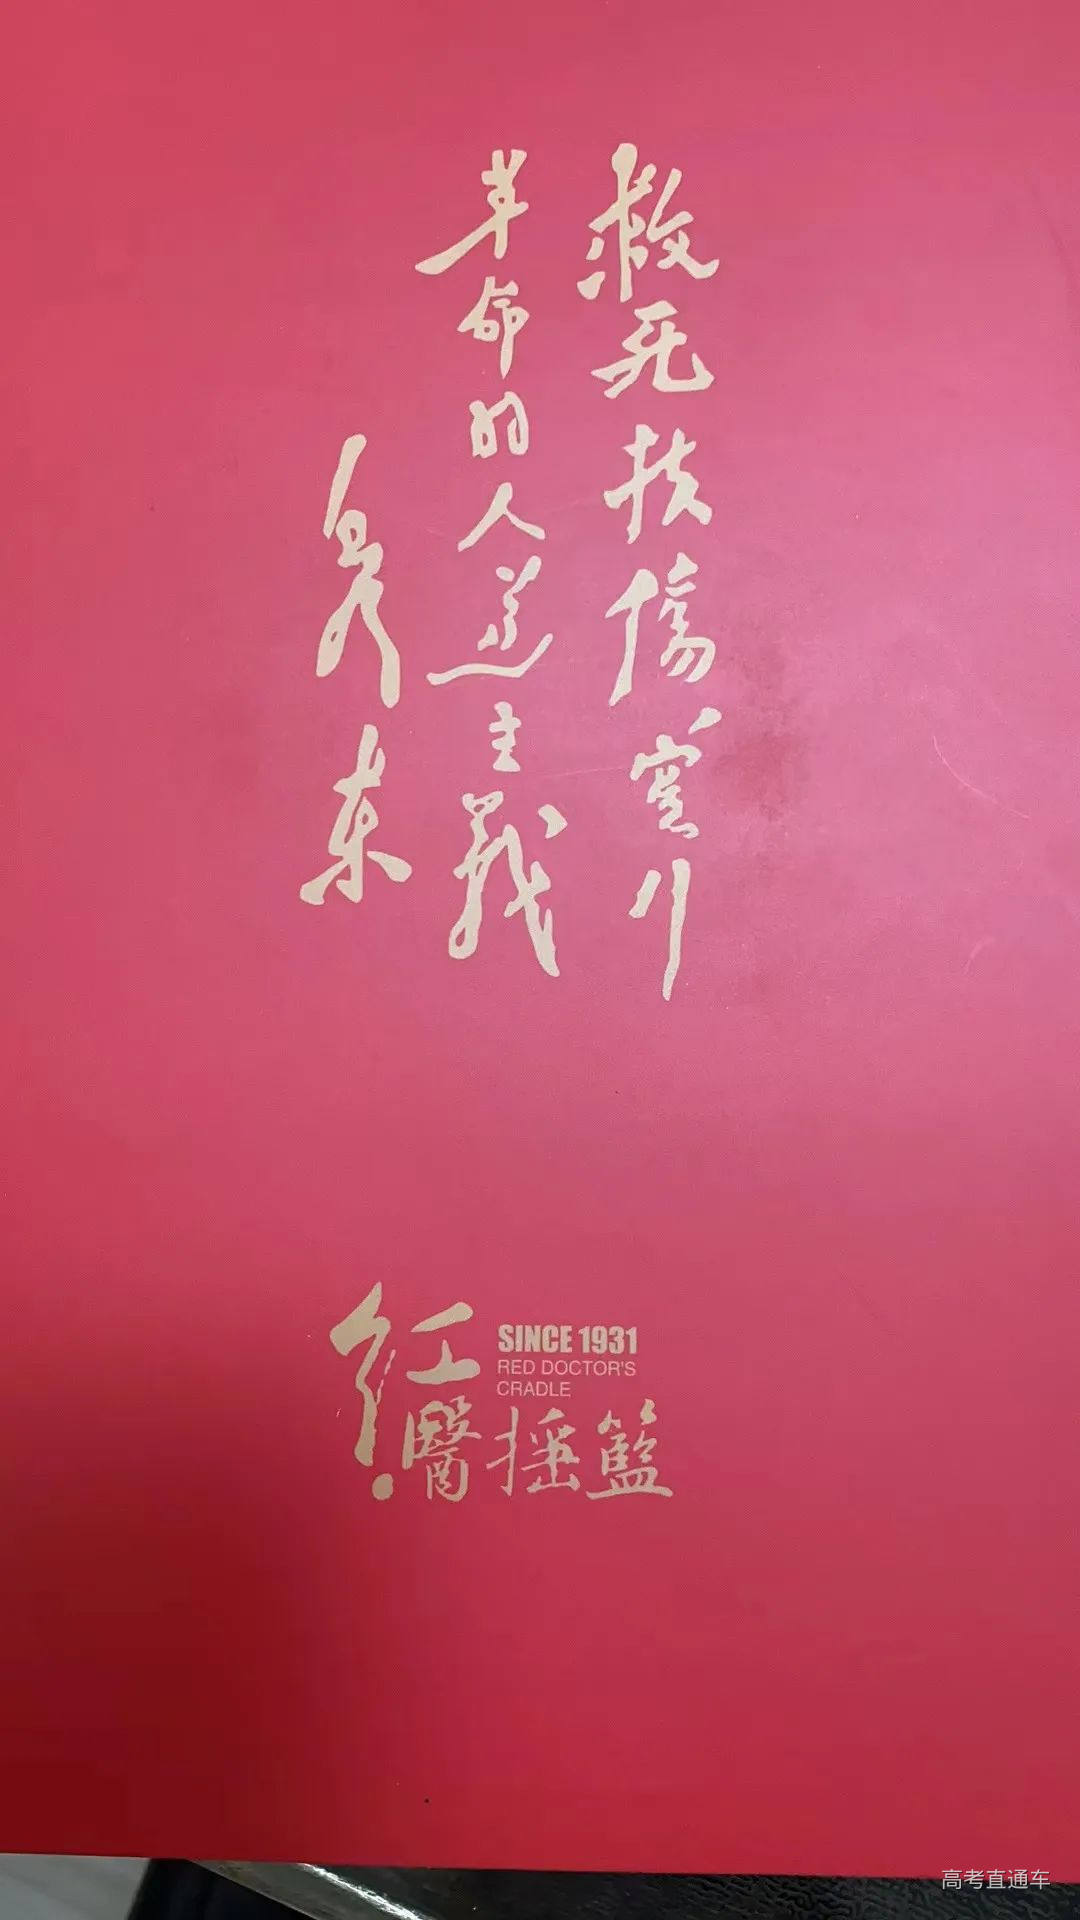 救死扶傷實行
革命的人道主義
毛澤东
紅醫摇籃
SINCE 1931
RED DOCTOR'S
CRADLE
高考直通车